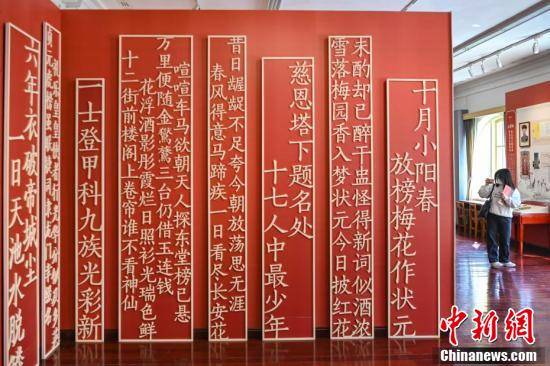 十月小阳春
放榜梅花作状元
未酌却已醉干盅怪得新词似酒浓
雪落梅园香入梦状元今日披红花
慈恩塔下题名处
十七人中最少年
昔日龌龊不足夸今朝放荡思无涯
春风得意马蹄疾一日看尽长安花
喧喧车马欲朝天人探东堂榜已悬
万里便随金鸑鷟三台仍借玉连钱
花浮酒影彤霞烂日照衫光瑞色鲜
十二街前楼阁上卷帘谁不看神仙
一士登甲科九族光彩新
六年衣破帝城尘
一日天池水脱
中新网
Chinanews.com